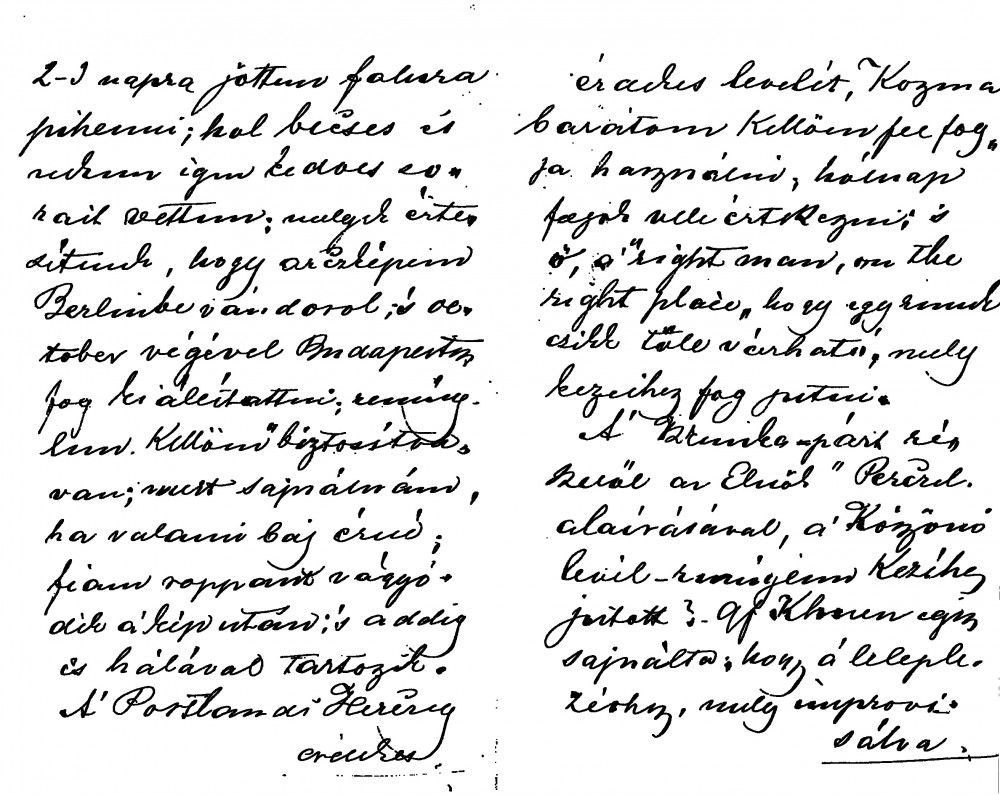 2-3 napra jöttem falura
pihenni; hol becses és
nekem igen kedves so-
rait vettem; melyek érte-
sítenek, hogy arczképem
Berlinbe vándorol; és oc-
tober végével Budapesten
fog kiállíttatni; remény-
lem. Kellően biztosítva
van; mert sajnálnám,
ha valami baj érné;
fiam roppant vágyó-
dik á kép után; 's addig
is hálával tartozik.
A' Herczeg
érdekes
érdekes levelét, Kozma
barátom Kellően fel fog-
ja használni; hólnap
fogok vele értekezni; 's
ő, á "right man, on the
right place„ hogy egy remek
csikk tőle várható, mely
kezeihez fog jutni.
Á -párt ré-
széről az Elnök Perczel
aláírásával, á Köszönő
levél - remélem Kezéhez
jutott? - Gf Khuen egész
sajnálta; hogy á leleple-
zéshez, mely improvi-
sálva.